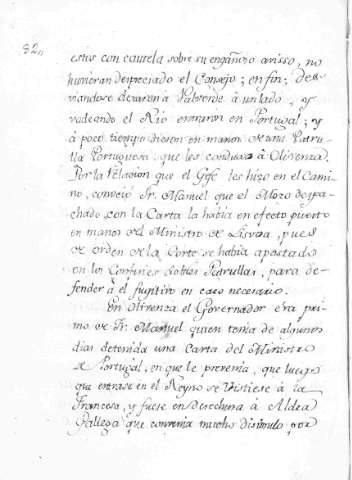 82,,
estos con cautela sobre su engañoso arisso, no
huvieran despreciado el Consejo; en fin; des-
viandose dexaron à Valverde à un lado, y
vadeando el Rio entraron en Portugal; y
à poco tiempo dieron en manos de una Patru-
lla Portuguesa que les conduxo à Olivenza.
Por la relacion que el Gefe les hizo en el Cami-
no, conoció Fr. Manuel que el Mozo despa-
chado con la Carta la habia en efecto puesto
en manos del Ministro de Lisvoa, pues
de orden de la Corte se habia apostado
en los Confines dobles Patrullas, para de-
fender à el fugitivo en caso necesario.
En Olivenza el Governador era pri-
mo de Fr. Manuel quien tenia de algunos
dias detenida una Carta del Ministro
de Portugal, en que le prevenia, que luego
que entrase en el Reyno se vistiese à la
Francesa, y fuese en derechura à Aldea
Gallega que convenia mucho disimulo, por